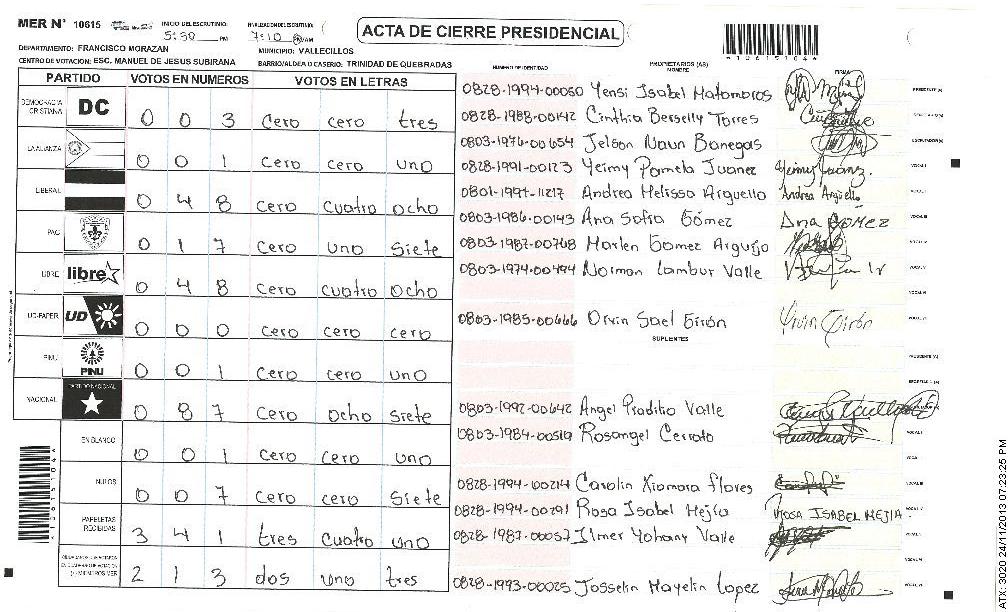 MER N° 10615
INICIO DEL ESCRUTINIO:
5:30 PM
FINALIZACION DEL ESCRUTINIO:
7:10
ACTA DE CIERRE PRESIDENCIAL
*10615104*
DEPARTAMENTO: FRANCISCO MORAZAN
MUNICIPIO: VALLECILLOS
CENTRO DE VOTACION: ESC. MANUEL DE JESUS SUBIRANA
BARRIO/ALDEA O CASERIO: TRINIDAD DE QUEBRADAS
PARTIDO VOTOS EN NUMEROS VOTOS EN LETRAS
DEMOCRACIA CRISTIANA DC 0 0 3 cero cero tres
LA ALIANZA 0 0 1 cero cero uno
LIBERAL 0 4 8 cero cuatro ocho
PAC 0 1 7 cero uno siete
LIBRE libre 0 4 8 cero cuatro ocho
UD-FAPER UD 0 0 0 cero cero cero
PINU PINU 0 0 1 cero cero uno
NACIONAL PARTIDO NACIONAL 0 8 7 cero ocho siete
EN BLANCO 0 0 1 cero cero uno
NULOS 0 0 7 cero cero siete
PAPELETAS RECIBIDAS 3 4 1 tres cuatro uno
2 1 3 dos uno tres
NUMERO DE IDENTIDAD
PROPIETARIOS (AS)
NOMBRE
FIRMA
0828-1994-00050 Yensi Isabel Matamoros
0828-1988-00142 Cinthia Berselly Torres
0803-1976-00654 Jelson Naun Banegas
0828-1991-00123 Yeimy Pamela Juanez
0801-1994-11217 Andrea Melissa Arguello Andrea Argüello
0803-1986-00143 Ana Sofia Gómez Ana GOMEZ
0803-1987-00768 Marlen Gomez Argujo
0803-1974-00494 Norman Lambur Valle
0803-1985-00666 Orvin Sael Girón
SUPLENTES
0803-1992-00642 Angel Pradilio Valle
0803-1984-00519 Rosangel Cerrato
0828-1994-00214 Carolin Xiomara flores
0828-1994-00291 Rosa Isabel Mejía ROSA ISABEL MEJIA
0828-1987-00057 Ilmer Yohany Valle
0828-1993-00025 Josselin Mayelin Lopez
*10615104*
ATX-3020 24/11/2013 07:23:25 PM